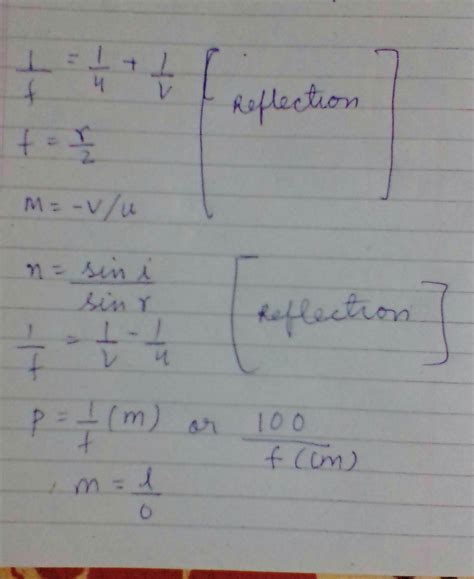 1/f = 1/u + 1/v [Reflection]
f = r/2
m = -v/u
n = sin i / sin r [Reflection]
1/f = 1/v - 1/u
P = 1/f (m) or 100/f (cm)
m = I/O